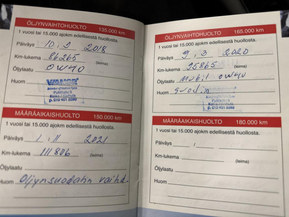 ÖLJYNVAIHTOHUOLTO 135.000 km
1 vuosi tai 15.000 ajokm edellisestä huollosta.
Päiväys 10.3 2018
Km-lukema (leima)
Öljylaatu 0W40
Huom
MÄÄRÄAIKAISHUOLTO 150.000 km
1 vuosi tai 15.000 ajokm edellisestä huollosta.
Päiväys 2021
Km-lukema 111806 (leima)
Öljylaatu
Huom Öljynsuodatin vaihd.
ÖLJYNVAIHTOHUOLTO 165.000 km
1 vuosi tai 15.000 ajokm edellisestä huollosta.
Päiväys 9.3. 2020
Km-lukema (leima)
Öljylaatu Mobil 0W40
Huom
MÄÄRÄAIKAISHUOLTO 180.000 km
1 vuosi tai 15.000 ajokm edellisestä huollosta.
Päiväys
Km-lukema (leima)
Öljylaatu
Huom